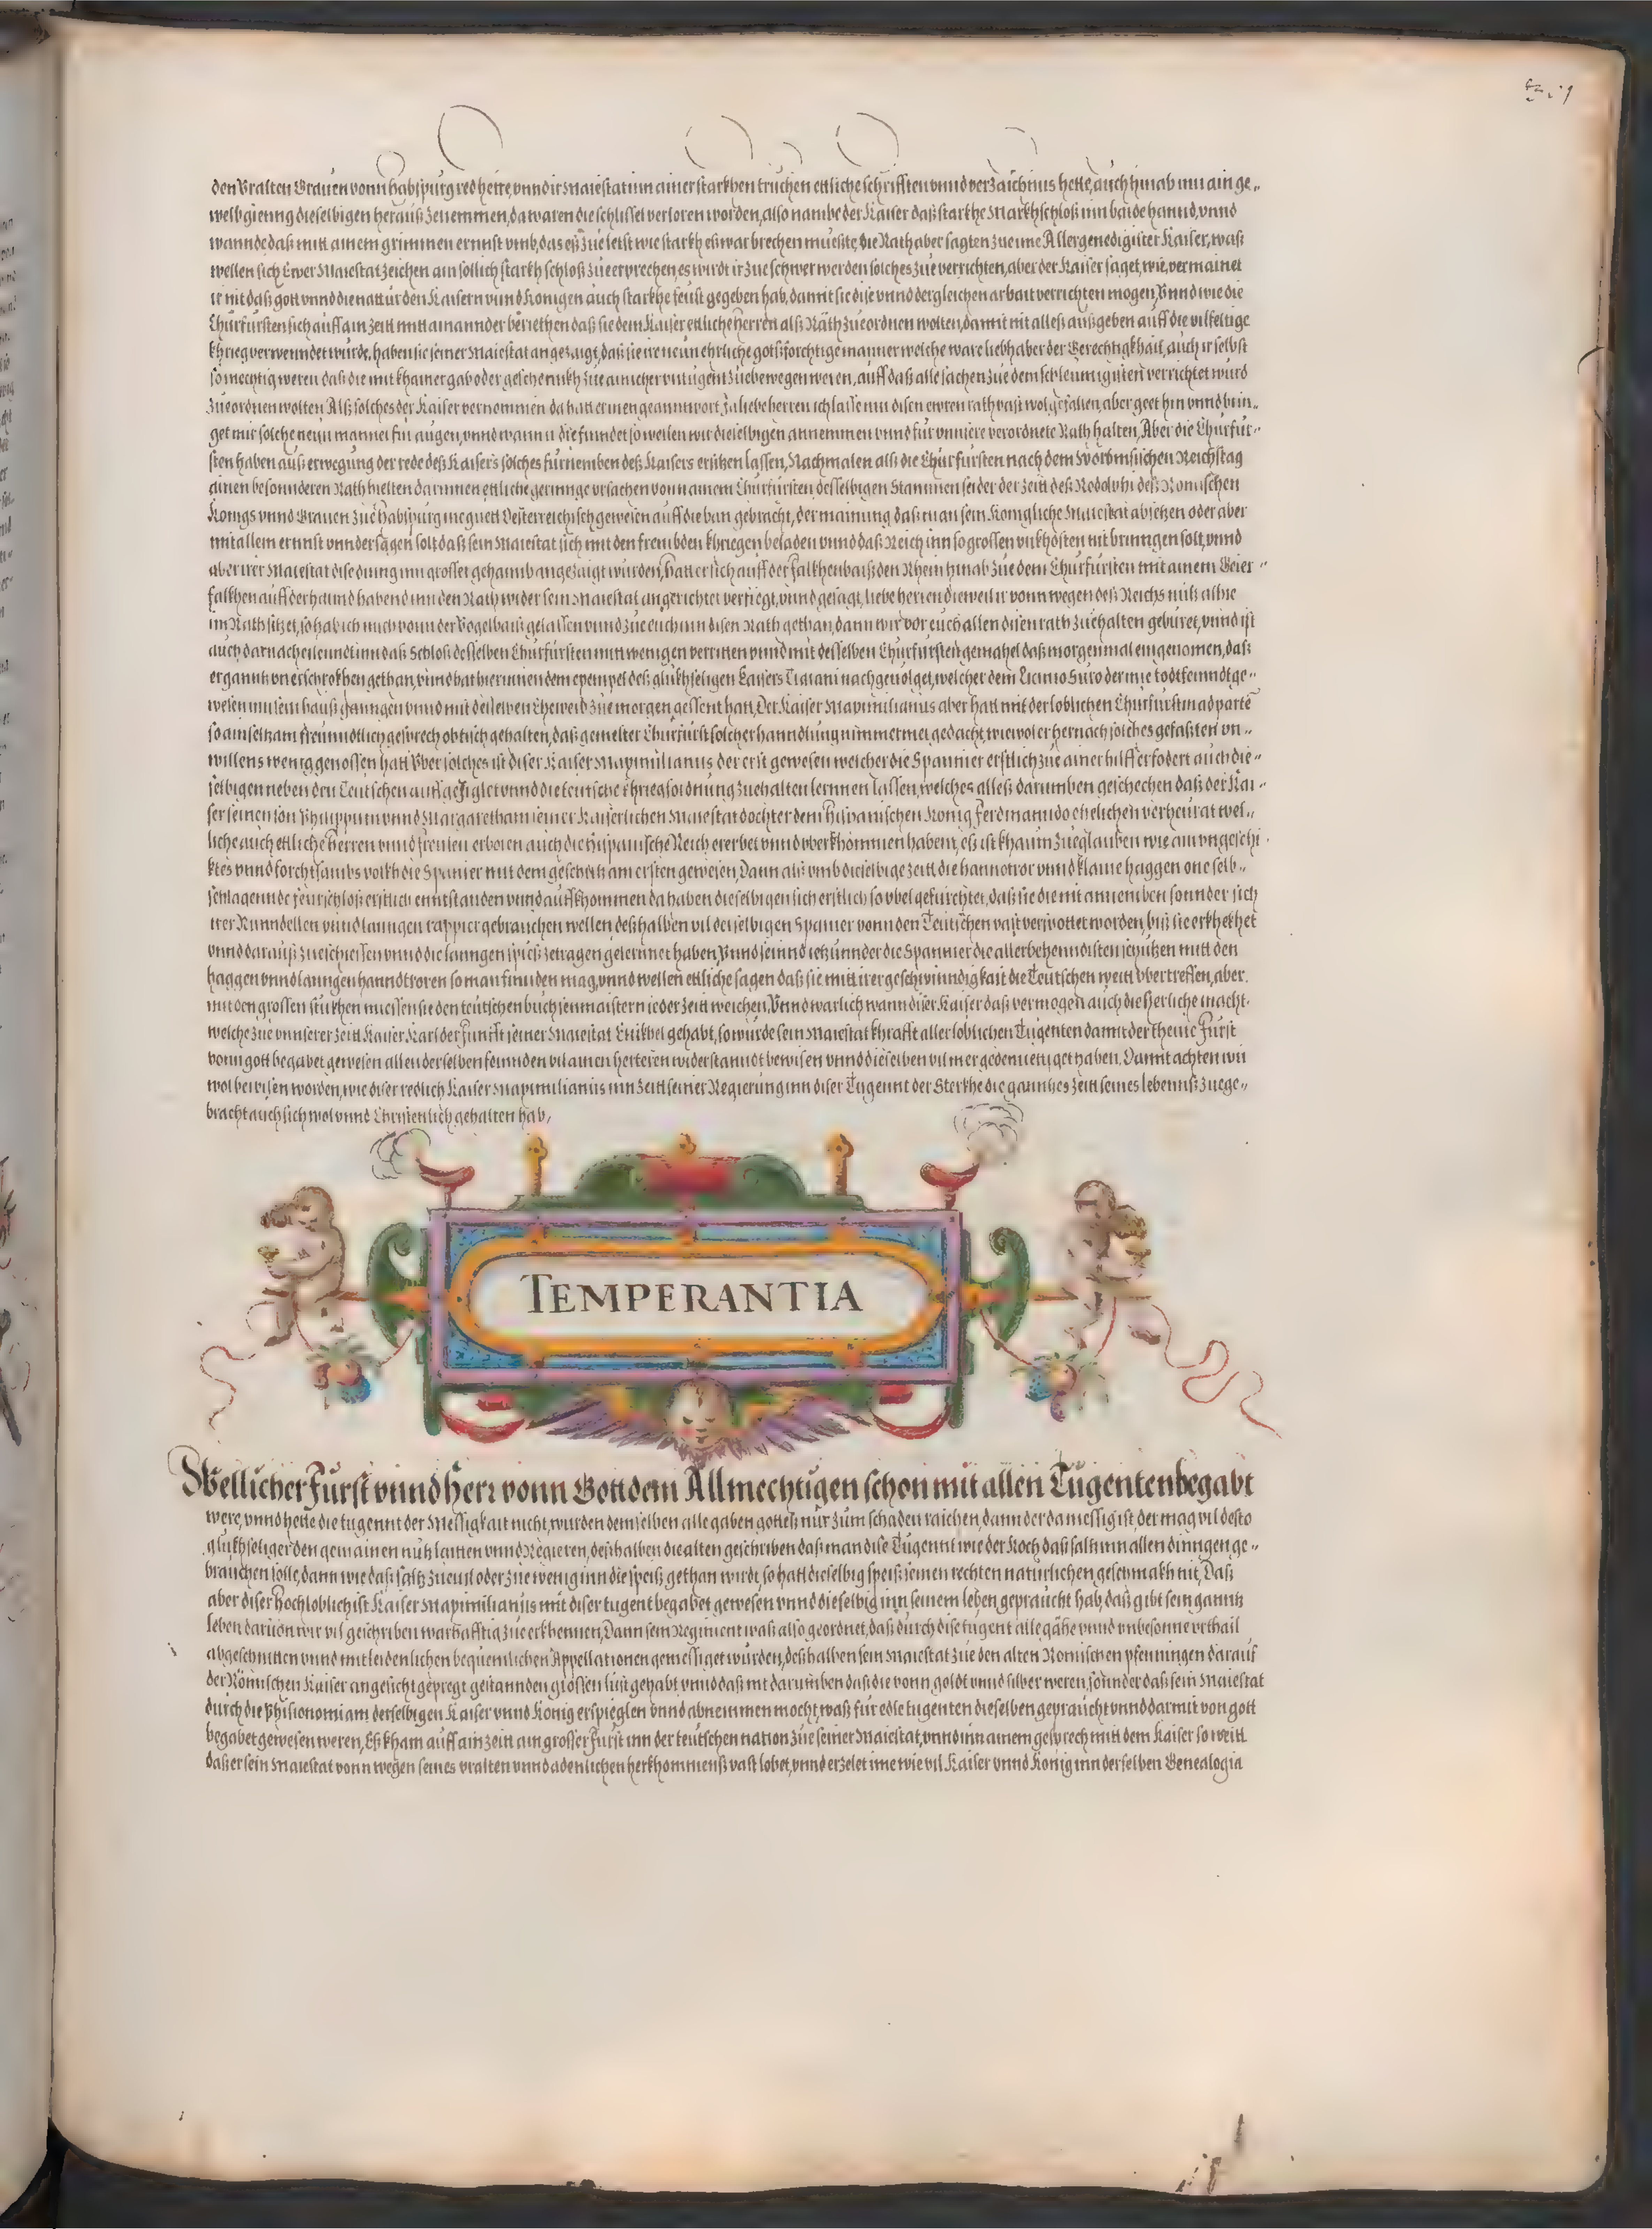 den Vralten Grauen vonn habspurg red hette, vnnd ir Maiestat inn ainer starkhen truchen ettliche schrifften vnnd verzaichnus hette, auch hinab inn ain ge-
welb gieng dieselbigen herauß zenemmen, da waren die schlissel verloren worden, also nambe der Kaiser daß starkhe Markhschloß inn baide hannd, vnnd
wannde daß mitt ainem grimmen ernnst vmb, das eß zue letst wie starkh eß war brechen mueßte, die Räth aber sagten zue ime Allergenedigister Kaiser, waß
wellen sich Ewer Maiestat zeichen ain sollich starkh schloß zue erprechen, es wirdt ir zue schwer werden solches zue verrichten, aber der Kaiser saget, wie, vermainet
ir nit daß gott vnnd die nattur den Kaisern vnnd Konigen auch starkhe feust gegeben hab, damit sie dise vnnd dergleichen arbait verrichten mogen, Vnnd wie die
Churfursten sich auff ain zeitt mitt ainannder beriethen daß sie dem Kaiser ettliche herren alß Räth zueordnen wolten, damit nit alleß außgeben auff die vilfeltige
khrieg verwendet wurde, haben sie seiner Maiestat angezaigt, daß sie ire neun ehrliche gottsforchtige manner welche ware liebhaber der Gerechtigkhait, auch ir selbst
so mechtig weren daß die mit khainer gab oder geschennkh zue ainicher vntugent zue bewegen weren, auff daß alle sachen zue dem schleunigisten verrichtet wurd
zueordnen wolten Alß solches der Kaiser vernommen da hatt er inen geanntwort Ja liebe herren ich lasse mir disen ewren rath vast wolgefallen, aber geet hin vnnd brin-
get mir solche neun manner für augen, vnnd wann ir die findet so wellen wir dieselbigen annemmen vnnd für vnnsere verordnete Räth halten, Aber die Churfür-
sten haben auß erwegung der rede deß Kaisers solches fürnemben deß Kaisers ersitzen lassen, Nachmalen alß die Churfürsten nach dem Wormsischen Reichstag
ainen besonnderen Rath hielten darinnen ettliche geringe vrsachen vonn ainem Churfürsten desselbigen Stammen seider der zeitt deß Rodolphi deß Romischen
Konigs vnnd Grauen zue habspurg nie guett Oesterreichisch gewesen auff die ban gebracht, der mainung daß man sein Konigliche Maiestat absetzen oder aber
mit allem ernnst vnndersagen solt daß sein Maiestat sich mit den frembden khriegen beladen vnnd daß Reich inn so grossen vnkhosten nit bringen solt, vnnd
aber irer Maiestat dise ding inn grosser gehaimb angezaigt wurden, hatt er sich auff der falkhenbaiß den Rhein hinab zue dem Churfürsten mit ainem Geier-
falkhen auff der hannd habend inn den Rath wider sein Maiestat angerichtet verfiegt, vnnd gesagt, liebe herren dieweil ir vonn wegen deß Reichs nutz alhie
im Rath sitzet, so hab ich mich vonn der Vogelbaiß gelassen vnnd zue euch inn disen Rath gethan, dann wir vor euch allen disen rath zuehalten gebüret, vnnd ist
auch darnach eilenndt inn daß Schloß desselben Churfürsten mitt wenigen verritten vnnd mit desselben Churfürsten gemahel daß morgenmal eingenomen, daß
er ganntz vnerschrokhen gethan, vnnd hat hierinnen dem exempel deß glükhseligen Kaisers Traiani nachgeuolget, welcher dem Licinio Suro der nie todtfeinndt ge-
wesen inn sein hauß ganngen vnnd mit desselben Eheweib zue morgen gessen hatt, Der Kaiser Maximilianus aber hatt mit der loblichen Churfürstin ad partē
so ain seltzam freunndtlich gesprech obtisch gehalten, daß gemelter Churfürst solcher hanndlung nimmer mer gedacht, wiewol er hernach solches gefaßten vn-
willens wenig genossen hatt Vber solches ist diser Kaiser Maximilianus der erst gewesen welcher die Spannier erstlich zue ainer hilff erfodert auch die-
selbigen neben den Teutschen auff geflglet vnnd die teutsche khriegsordnung zuehalten lernnen lassen, welches alleß darumben geschechen daß der Kai-
ser seinen son Philippum vnnd Margaretham seiner Kaiserlichen Maiestat dochter dem Hispanischen Konig Ferdinanndo ehelichen verheurat wel-
liche auch ettliche Herren vnnd freulen erboren auch die Hispanische Reich ererbet vnnd vberkhommen haben, eß ist khaum zueglauben wie ain vngeschi-
ktes vnnd forchtsambs volkh die Spanier mit dem geschütz am ersten gewesen, Dann alß vmb dieselbige zeitt die hanntror vnnd klaine haggen one selb-
schlagennde feurschloß erstlich enntstannden vnnd auffkhommen da haben dieselbigen sich erstlich so vbel gefürchtet, daß sie die nit annemben sonnder sich
irer Runndellen vnnd lanngen rappier gebrauchen wellen deßhalben vil derselbigen Spanier vonn den Teutschen vast verspottet worden, biß sie erkhekhet
vnnd darauß zueschiessen vnnd die lanngen spieß zetragen gelernnet haben, Vnnd seinnd ietzunnder die Spannier die allerbehenndisten schützen mitt den
haggen vnnd lanngen hanndtroren so man finnden mag, vnnd wellen ettliche sagen daß sie mitt irer geschwinndigkait die Teutschen weitt vbertreffen, aber
mit den grossen stükhen muessen sie den teutschen buchsenmaistern ieder zeitt weichen, Vnnd warlich wann diser Kaiser daß vermogen auch die herliche macht
welche zue vnnserer zeitt Kaiser Karl der Funfft seiner Maiestat Enikhel gehabt, so würde sein Maiestat khrafft aller loblichen Tugenten damit der theure Fürst
vonn gott begabet gewesen allen derselben feinnden vil ainen herteren widerstanndt bewisen vnnd dieselben vil mer gedemuettiget haben. Damit achten wir
wol bewisen worden, wie diser redlich Kaiser Maximilianus inn zeitt seiner Regierung inn diser Tugennt der Sterkhe die ganntze zeitt seines lebenns zuege-
bracht auch sich wol vnnd Christenlich gehalten hab,
TEMPERANTIA
Wellicher Fürst vnnd Herr vonn Gott dem Allmechtigen schon mit allen Tugenten begabt
were, vnnd hette die tugennt der Messigkait nicht, wurden demselben alle gaben gotteß nür züm schaden raichen, dann der da messig ist, der mag vil desto
glükhseliger den gemainen nutz laitten vnnd Regieren, deßhalben die alten geschriben daß man dise Tugennt wie der Koch daß saltz inn allen dinngen ge-
brauchen solle, dann wie daß saltz zueuil oder zue wenig inn die speiß gethan wirdt, so hatt dieselbig speiß seinen rechten natürlichen geschmakh nit, Daß
aber diser Hochloblichist Kaiser Maximilianus mit diser tugent begabet gewesen vnnd dieselbig inn seinem leben gepraucht hab, daß gibt sein ganntz
leben daruon wir vil geschriben warhafftig zue erkhennen, Dann sein Regiment waß also geordnet, daß durch dise tugent alle gähe vnnd vnbesonne vrthail
abgeschnitten vnnd mit leidenlichen bequemlichen Appellationen gemessiget wurden, deßhalben sein Maiestat zue den alten Romischen pfenningen darauf
der Römischen Kaiser angesicht gepregt gestannden grossen lust gehabt vnnd daß nit darumben daß die vonn goldt vnnd silber weren, sonnder daß sein Maiestat
durch die Phisionomiam derselbigen Kaiser vnnd Konig erspieglen vnnd abnemmen mocht, waß für edle tugenten dieselben gepraucht vnnd darmit von gott
begabet gewesen weren, Eß kham auff ain zeitt ain grosser Fürst inn der teutschen nation zue seiner Maiestat, vnnd inn ainem gesprech mitt dem Kaiser so weitt
daß er sein Maiestat vonn wegen seines vralten vnnd adenlichen herkhommenß vast lobet, vnnd erzelet ime wie vil Kaiser vnnd Konig inn derselben Genealogia